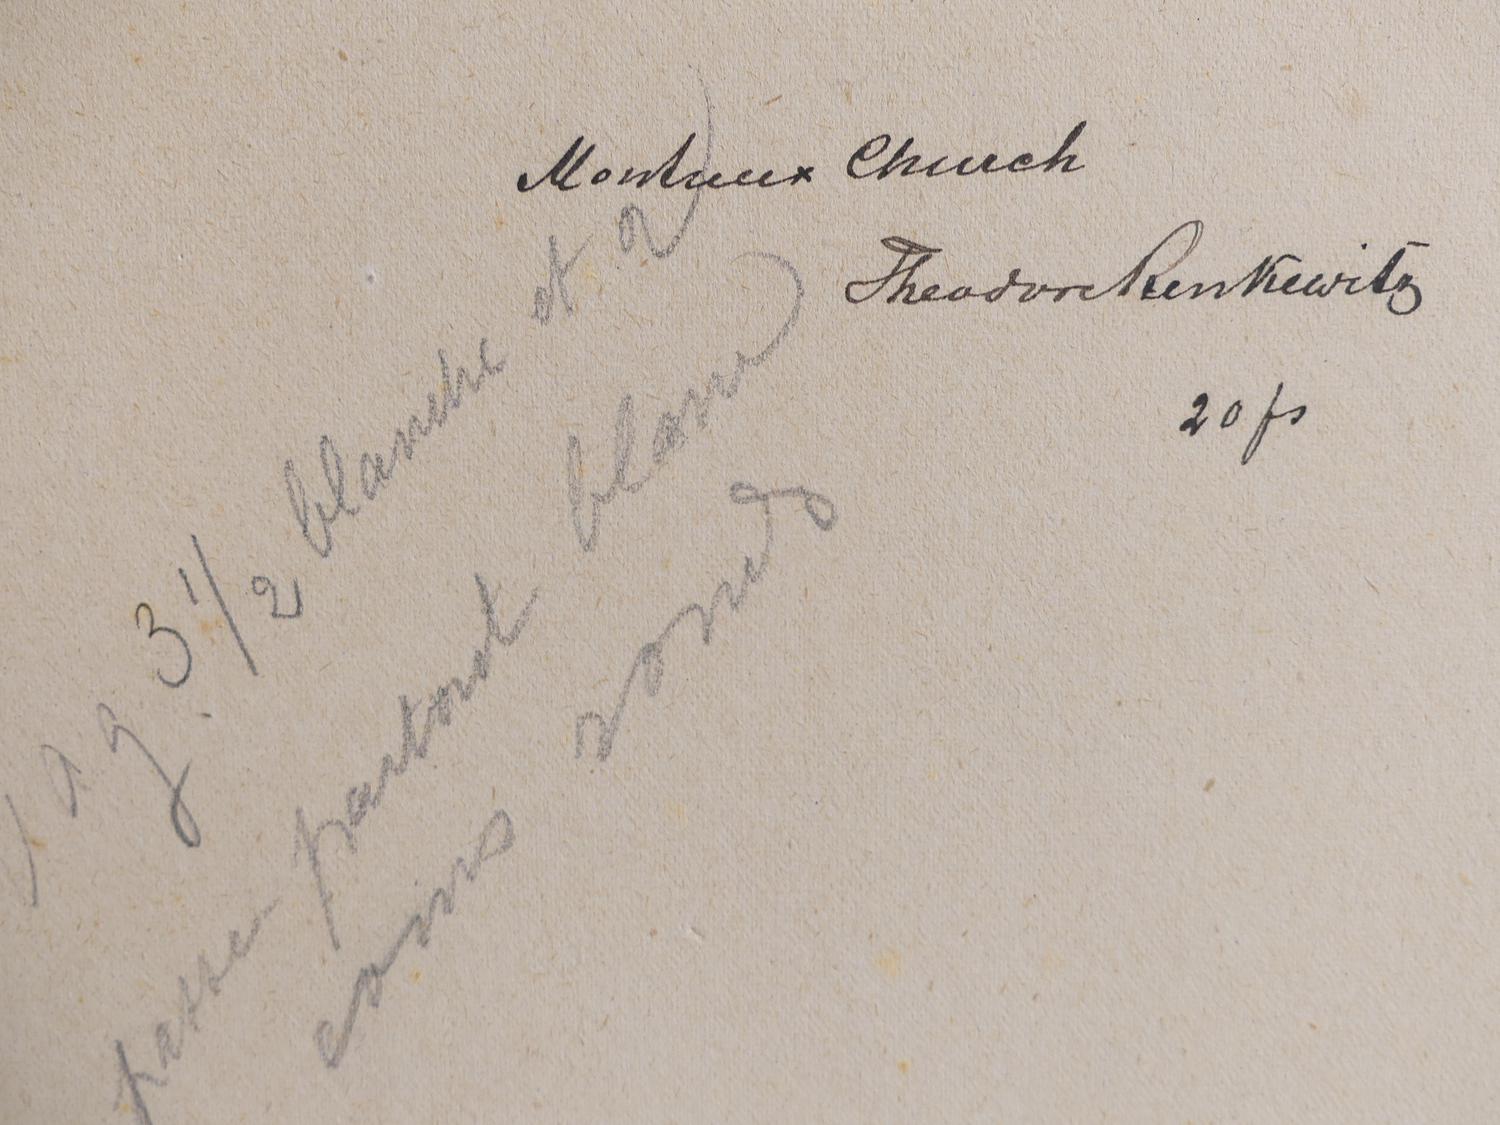 Montreux Church
Theodore Renkewitz
20 fs
3 1/2 blanche et 2
passe partout blanc
coins ronds